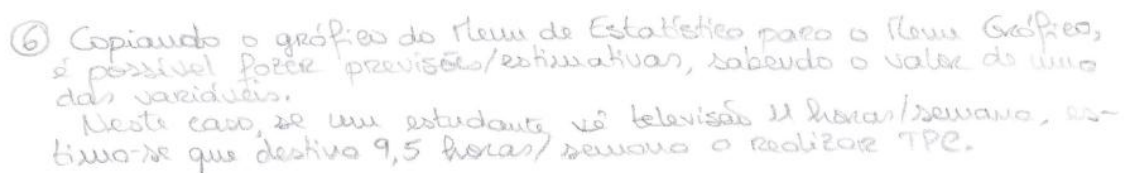 ⑥ Copiando o gráfico do Menu de Estatística para o Menu Gráfico,
é possível fazer previsões/estimativas, sabendo o valor de uma
das variáveis.
Neste caso, se um estudante vê televisão 11 horas/semana, es-
tima-se que destina 9,5 horas/semana a realizar TPC.